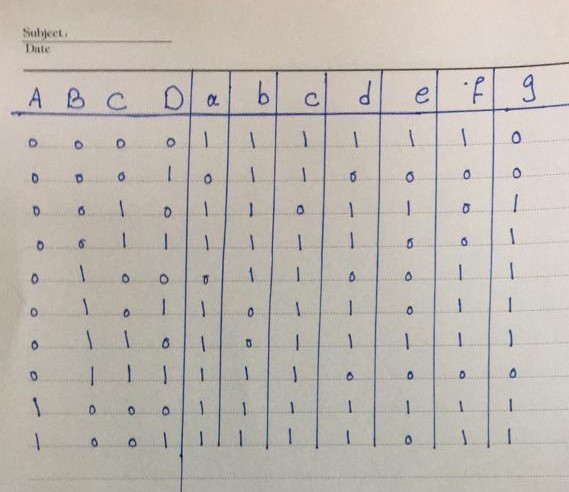 Subject.
Date
A B C D a b c d e f g
0 0 0 0 1 1 1 1 1 1 0
0 0 0 1 0 1 1 0 0 0 0
0 0 1 0 1 1 0 1 1 0 1
0 0 1 1 1 1 1 1 0 0 1
0 1 0 0 0 1 1 0 0 1 1
0 1 0 1 1 0 1 1 0 1 1
0 1 1 0 1 0 1 1 1 1 1
0 1 1 1 1 1 1 0 0 0 0
1 0 0 0 1 1 1 1 1 1 1
1 0 0 1 1 1 1 1 0 1 1